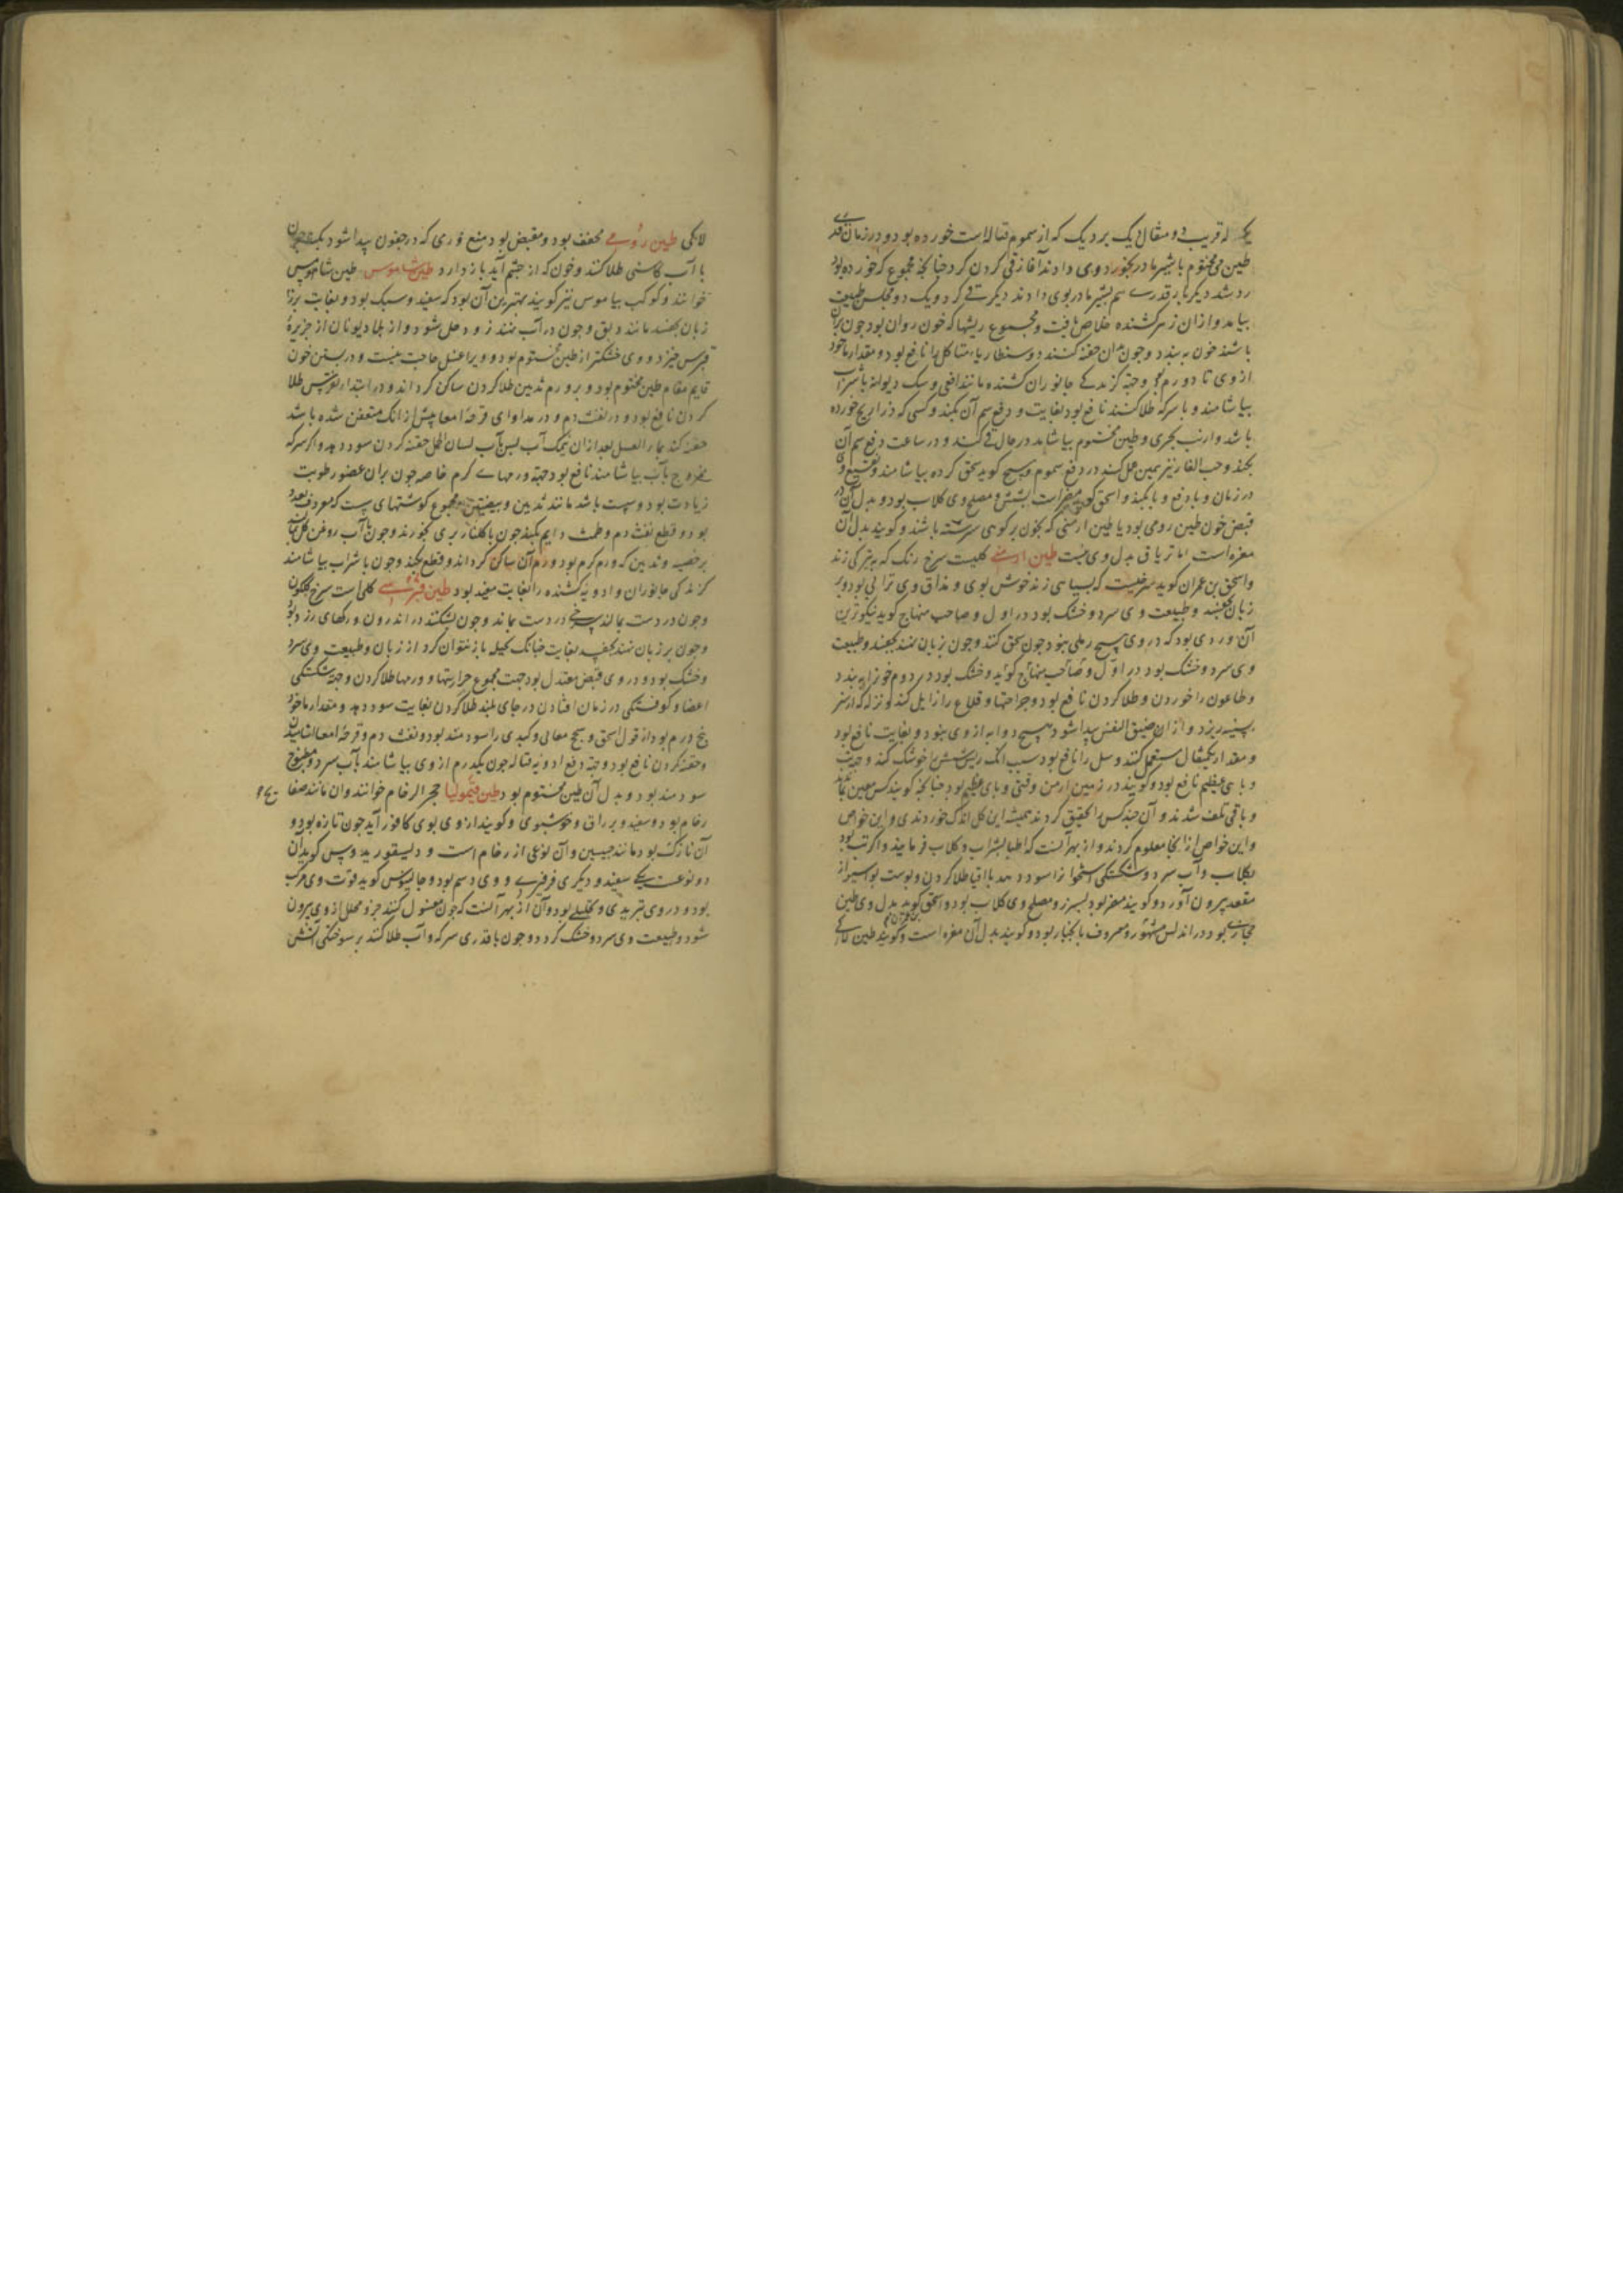 طین مختوم با شیر مادر بخورد وی دادند آغاز قی کردن کرد چنانچه مجموع که خورده بود
رد شد دیگر بار قدری هم بشیر مادر بوی دادند دیگر قی کرد و یک دو مجلس طبیعت
بیامد و ازان زهر کشنده خلاص یافت و مجموع ریشها که خون روان بود چون بران
باشند خون به بندد و چون بدان حقنه کنند دوسنطاریاء متاکل را نافع بود و مقدار ماخوذ
از وی تا دو درم بود وجهة گزندگی جانوران کشنده مانند افعی و سک دیوانه با شراب
بیاشامند و با سرکه طلا کنند نافع بود بغایت و دفع سم آن بکند و کسی که ذراریح خورده
باشد و ارنب بحری و طین مختوم بیاشامد در حال قی کند و در ساعت دفع سم آن
بکند و حب الغار نیز همین عمل کند در دفع سموم و مسیح کوید سحق کرده بیاشامند
در زمان وبا دفع وبا بکند و اسحق کوید مضر است بشش و مصلح وی کلاب بود و بدل آن در
قبض خون طین رومی بود یا طین ارمنی که بخون بز کوهی سرشته باشند و کویند بدل آن
مغره است اما تریاق بدل وی نیست طین ارمنی کلیست سرخ رنک که به تیرکی زند
واسحق بن عمران کوید سرخیست که بسیاهی زند خوش بوی و مذاق وی ترابی بود و بر
زبان بچسبد و طبیعت وی سرد و خشک بود در اول و صاحب منهاج کوید نیکوترین
آن وردی بود که در وی هیچ رملی نبود چون سحق کنند و چون بر زبان نهند بچسبد و طبیعت
وی سرد و خشک بود در اول و صاحب منهاج کوید و خشک بود در دوم خون را به بندد
و طاعون را خوردن و طلا کردن نافع بود و جراحتها و قلاع را زایل کند و نزله که از سر
بسینه ریزد و ازان ضیق النفس پیدا شود هیچ دوا به از وی نبود و بغایت نافع بود
و مقدار یکمثقال مستعمل کنند و سل را نافع بود سبب آنک ریش شش را خوشک کند و جهت
وبای عظیم نافع بود و کویند در زمین ارمن وقتی وبای عظیم بود چنانچه کویند کس معین بماند
و باقی تلف شدند و آن چند کس را تحقیق کردند همیشه این کل اندک خوردندی و این خواص
و این خواص از انجا معلوم کردند و از بهر آنست که اطبا بشراب و کلاب فرمایند و اکر تب بود
بکلاب و آب سرد و شکستکی استخوانرا سود دهد با اقاقیا طلا کردن و پوست بواسیر از
مقعد بیرون آورد و کویند مضر بود بسپرز و مصلح وی کلاب بود و اسحق کوید بدل وی طین
حجازی بود در اندلس مشهور و معروف بانجبار بود و کویند بدل آن مغره است و کویند طین لاکی
لاکی طین رومی مجفف بود و مقبض بود و منع وری که در جفون پیدا شود بکند چون
با آب کاسنی طلا کنند و خون که از چشم آید باز دارد طین شاموس طین شاموس
خوانند و کوکب ساموس نیز کویند بهترین آن بود که سفید و سبک بود و بغایت بر
زبان بچسبد مانند دبق و چون در آب نهند زود حل شود و از بلاد یونان از جزیرهٔ
قبرس خیزد و وی خشکتر از طین مختوم بود و ویرا غسل حاجت نیست و در بستن خون
قایم مقام طین مختوم بود و بر ورم ثدیین طلا کردن ساکن کرداند و در ابتداء نقرس طلا
کردن نافع بود و در نفث دم و در مداوای قرحهٔ امعا پیش از انک متعفن شده باشد
حقنه کند بماء العسل بعد ازان بنمک آب پس بآب لسان الحمل حقنه کردن سود دهد و اکر سرکه
ممزوج بآب بیاشامند نافع بود جهة ورمهاے کرم خاصه چون بران عضو رطوبت
زیادت بود و سست باشد مانند ثدیین و بیضتین و مجموع کوشتهای سست که معروف بغدد
بود و قطع نفث دم و طمث دایم بکند چون با کلنار بری بخورند و چون بآب روغن کل
بر خصیه و ثدیین که ورم کرم بود ورم آن ساکن کرداند و قطع بکند و چون با شراب بیاشامند
کزندکی جانوران و ادویهٔ کشنده را بغایت مفید بود طین قبرسے کلی است سرخ کلکون
و چون در دست بمالند سرخی در دست بماند و چون بشکنند در اندرون ورکهای زرد بود
و چون بر زبان نهند بچسبد بغایت چنانک بحیله باز نتوان کرد از زبان و طبیعت وی سرد
و خشک بود و در وی قبض معتدل بود جهت مجموع حرارتها و ورمها طلا کردن و جهة شکستکی
اعضا و کوفتکی در زمان افتادن در جای بلند طلا کردن بغایت سود دهد و مقدار ماخوذ
پنج درم بود از قول اسحق و سحج معایی و کبدی را سودمند بود و نفث دم و قرحهٔ امعا
و حقنه کردن نافع بود و جهة دفع ادویه قتاله چون یکدرم از وی بیاشامند بآب سرد و مطبوخ
سودمند بود و بدل آن طین مختوم بود طین قیمولیا حجر الرخام خوانند و آن مانند صفایح
رخام بود و سفید و براق و خوشبوی و کویند از وی بوی کافور آید چون تازه بود و
آن نازک بود مانند جبسین و آن نوعی از رخام است و دیسقوریدوس کوید آن
دو نوعست یکے سفید و دیکری فرفیری و وی دسم بود و جالینوس کوید قوت وی مرکب
بود و در وی تبریدی و تحلیلی بود و آن از بهر آنست که چون مغسول کنند جزو محلل از وی بیرون
شود و طبیعت وی سرد و خشک کردد و چون با قدری سرکه و آب طلا کنند بر سوختکی آتش